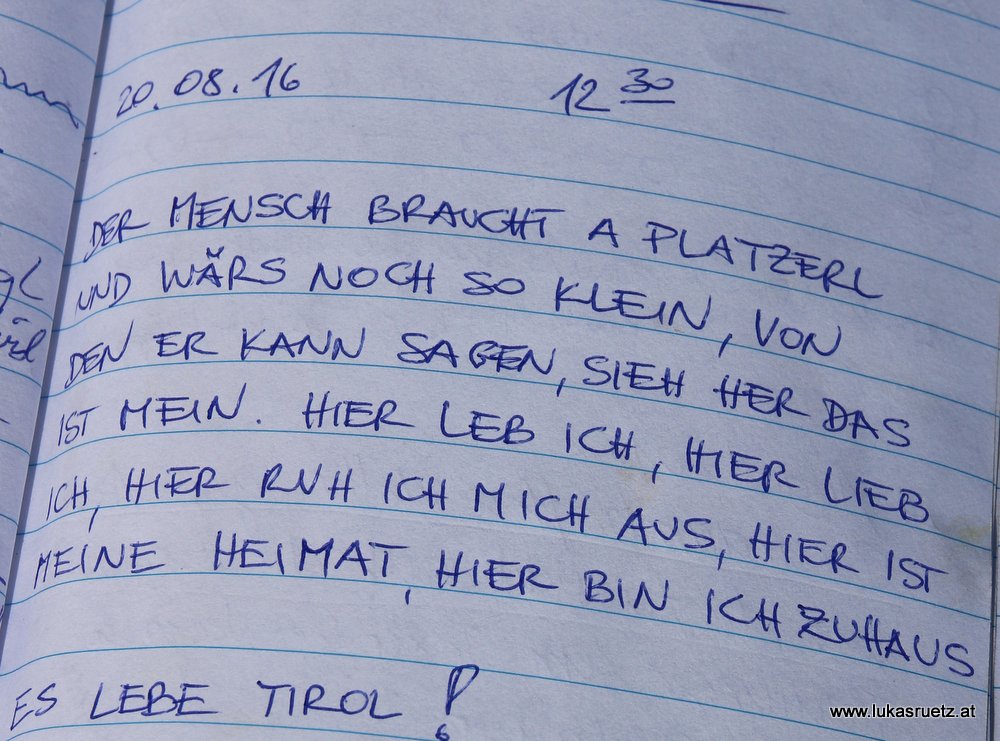 20.08.16 12 30
DER MENSCH BRAUCHT A PLATZERL
UND WÄRS NOCH SO KLEIN, VON
DEN ER KANN SAGEN, SIEH HER DAS
IST MEIN. HIER LEB ICH, HIER LIEB
ICH, HIER RUH ICH MICH AUS, HIER IST
MEINE HEIMAT, HIER BIN ICH ZUHAUS
ES LEBE TIROL !
www.lukasruetz.at